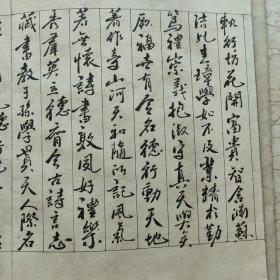 執行坊花開富貴智含滿蘇
浩比圭璋學如不及業精於勤
篤禮崇義抱淑守真天與矣
厥福世有令名德行動天地
著作壽山河天和隨所記風氣
若無懷詩書敦夙好禮樂
秀群英立德齊今古詩言志
藏書教子孫學貫天人際名